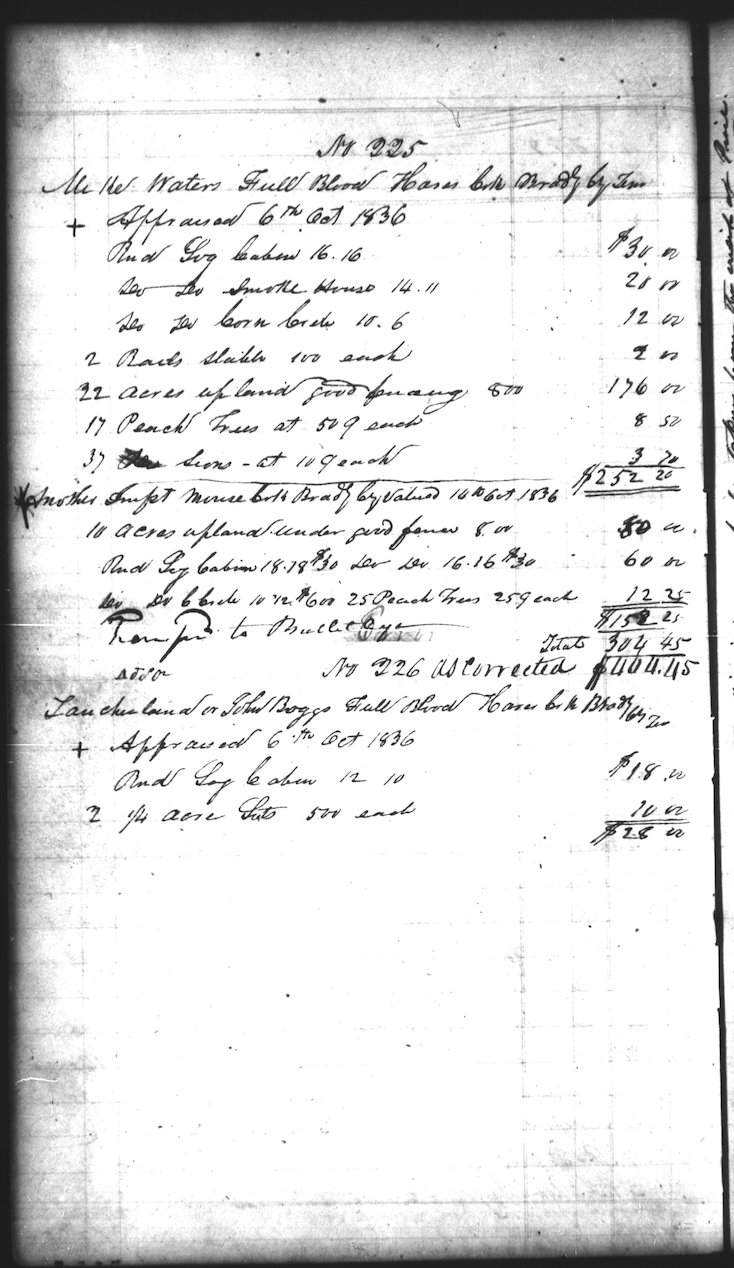 No 225
Waters Full Blood Hares Crk Brady Cy Ten
+ Appraised 6th Oct 1836
Rnd Log Cabin 16.16 $30 00
Do Do Smoke House 14.11 20 00
Do Do Corn Crib 10.6 12 00
2 Rails Stable 100 each 2 00
22 acres upland good fencing 800 176 00
17 Peach Trees at 50 q each 8 50
37 Sions - at 10 q each 3 70
$252 20
Another Impt Mouse Crk Brady Cy Valued 14th Oct 1836
10 acres upland under good fence 8.00 80 00
Rnd Log Cabin 18.18 $30 Do Do 16.16 $30 60 00
Do Do C Crib 10.12 $600 25 Peach Trees 25 q each 12 25
$152 25
to Bullet Eye
Total 304 45
No 226 As Corrected $404.45
or John Boggs Full Blood Hares Crk Brady Cy Ten
+ Appraised 6th Oct 1836
Rnd Log Cabin 12 10 $18.00
2 1/4 acre Lots 500 each 10 00
$28 00